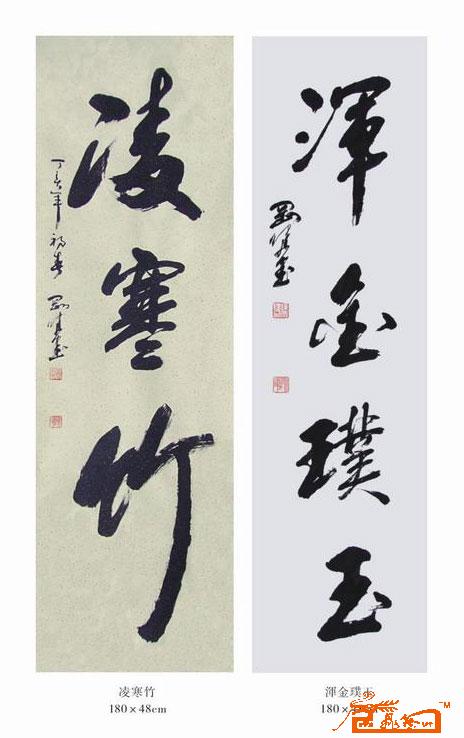 凌寒竹
丁亥年初春
渾金璞玉
凌寒竹
180×48cm
渾金璞玉
180×
TM